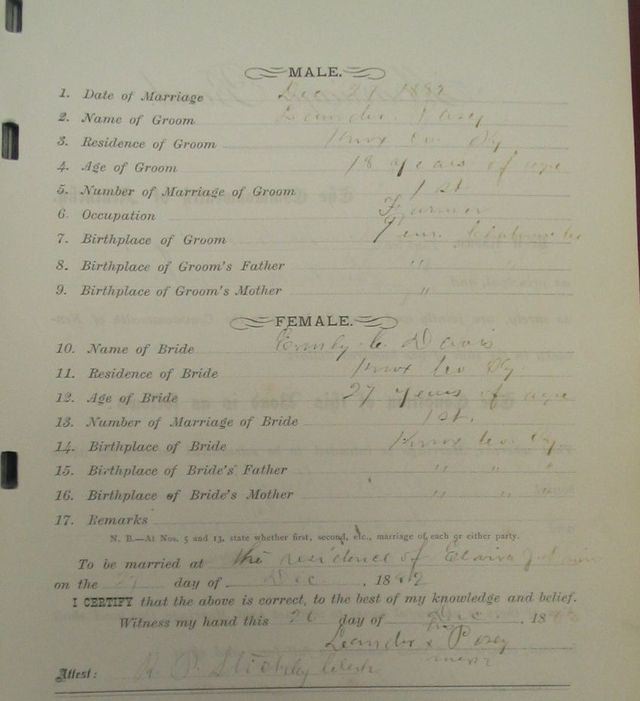 MALE.
1. Date of Marriage Dec 27 1882
2. Name of Groom Leander Posey
3. Residence of Groom Knox Co Ky
4. Age of Groom 18 years of age
5. Number of Marriage of Groom 1st
6. Occupation Farmer
7. Birthplace of Groom Tenn
8. Birthplace of Groom's Father "
9. Birthplace of Groom's Mother "
FEMALE.
10. Name of Bride Emily C. Davis
11. Residence of Bride Knox Co Ky
12. Age of Bride 27 years of age
13. Number of Marriage of Bride 1st.
14. Birthplace of Bride Knox Co. Ky.
15. Birthplace of Bride's Father " " "
16. Birthplace of Bride's Mother " " "
17. Remarks
N. B.—At Nos. 5 and 13, state whether first, second, etc., marriage of each or either party.
To be married at the residence of
on the 27 day of Dec, 1882
I CERTIFY that the above is correct, to the best of my knowledge and belief.
Witness my hand this 26 day of , 18
Leander x Posey
Attest: Clerk